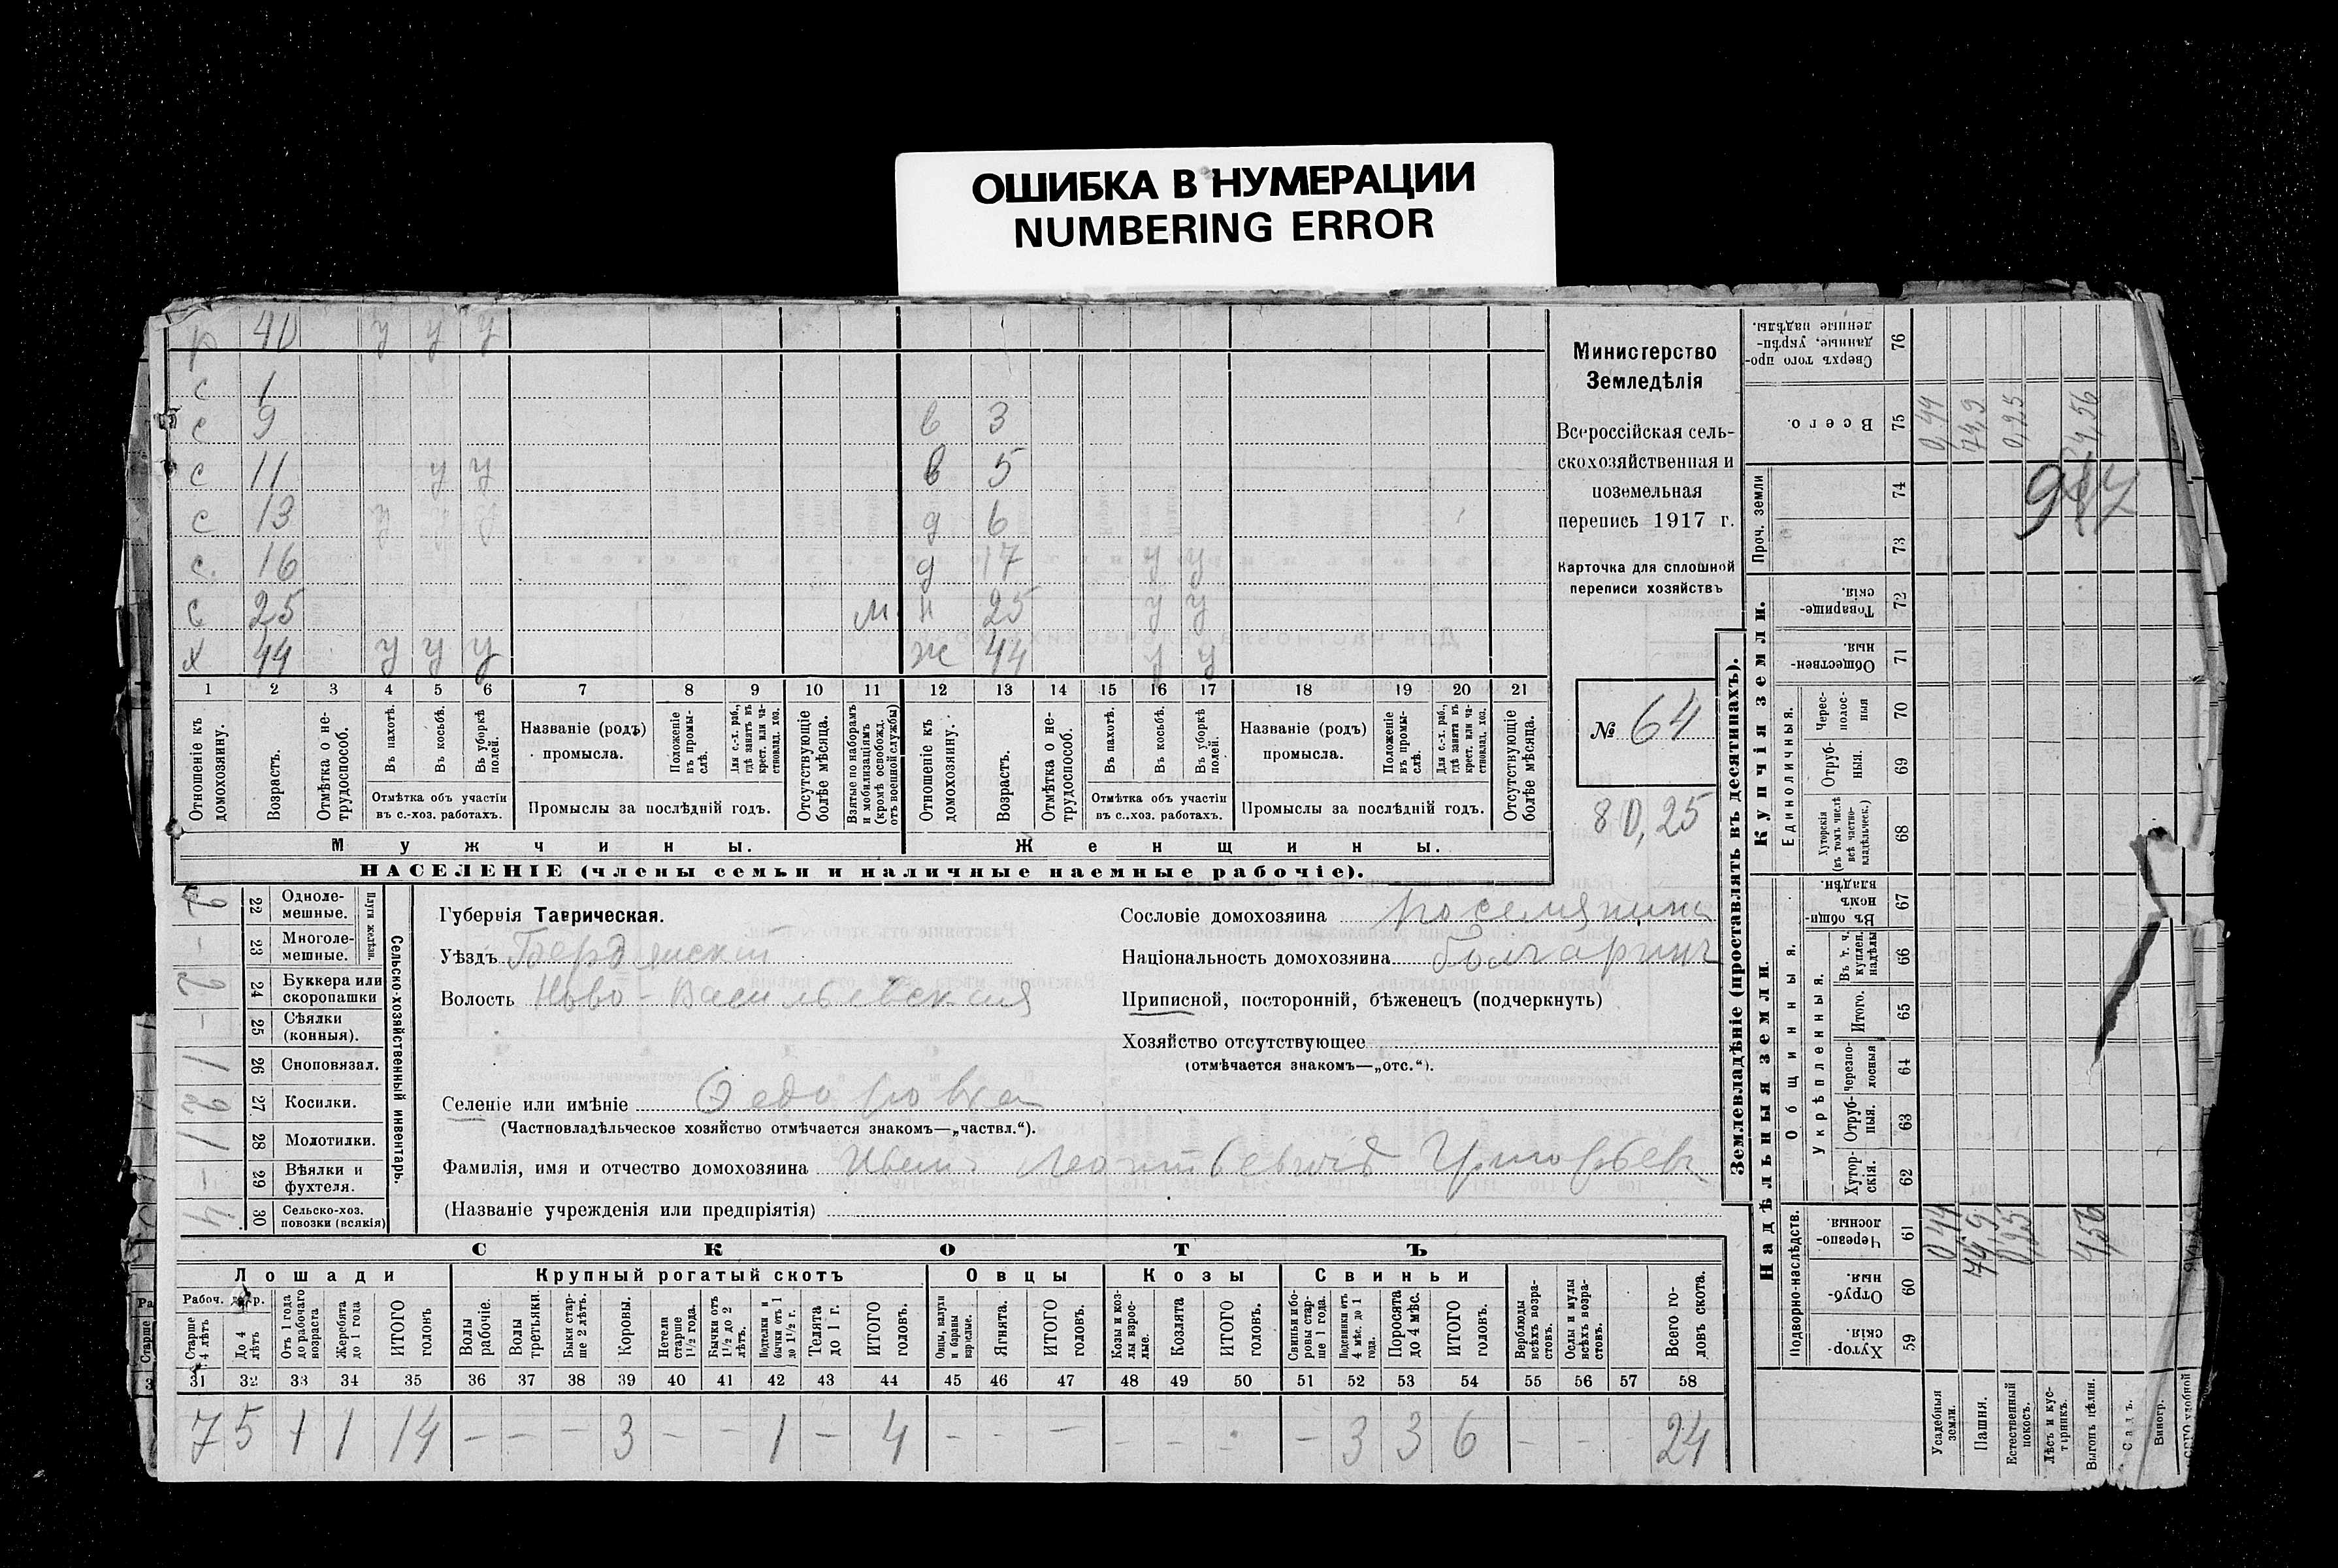 ОШИБКА В НУМЕРАЦИИ
NUMBERING ERROR
р 40 у у у
с 1
с 9 в 3
с 11 у у в 5
с 13 у у у д 6
с. 16 д 17 у у
с 25 м. н 25 у у
х 44 у у у ж 44 у у
1 2 3 4 5 6 7 8 9 10 11 12 13 14 15 16 17 18 19 20 21
Отношеніе къ домохозяину.
Возрастъ.
Отмѣтка о не-трудоспособ.
Въ пахотѣ.
Въ косьбѣ.
Въ уборкѣ полей.
Отмѣтка объ участіи
въ с.-хоз. работахъ.
Названіе (родъ)
промысла.
Положеніе въ промы-слѣ.
Для с.-х. раб., гдѣ занятъ въ крест. или ча-стновлад. хоз.
Промыслы за послѣдній годъ.
Отсутствующіе болѣе мѣсяца.
Взятые по наборамъ и мобилизаціямъ (кромѣ освобожд. отъ военной службы)
Отношеніе къ домохозяину.
Возрастъ.
Отмѣтка о не-трудоспособ.
Въ пахотѣ.
Въ косьбѣ.
Въ уборкѣ полей.
Отмѣтка объ участіи
въ с..хоз. работахъ.
Названіе (родъ)
промысла.
Положеніе въ промы-слѣ.
Для с.-х. раб., гдѣ занятъ въ крест. или ча-стновлад. хоз.
Промыслы за послѣдній годъ.
Отсутствующіе болѣе мѣсяца.
Мужчины. Женщины.
НАСЕЛЕНІЕ (члены семьи и наличные наемные рабочіе).
Министерство
Земледѣлія
Всероссійская сель-
скохозяйственная и
поземельная
перепись 1917 г.
Карточка для сплошной
переписи хозяйствъ
№ 64
80,25
Сельско-хозяйственный инвентарь.
Плуги желѣзн.
2 22 Одноле-мешные.
- 23 Многоле-мешные.
2 24 Буккера или скоропашки
- 25 Сѣялки (конныя).
1 26 Сноповязал.
2 27 Косилки.
1 28 Молотилки.
- 29 Вѣялки и фухтеля.
4 30 Сельско-хоз. повозки (всякія)
Губернія Таврическая.
Уѣздъ Бердянскій
Волость Ново-Васильевская
Сословіе домохозяина поселянинъ
Національность домохозяина Болгаринъ
Приписной, посторонній, бѣженецъ (подчеркнуть)
Хозяйство отсутствующее
(отмѣчается знакомъ—„отс.“).
Селеніе или имѣніе Федоровка
(Частновладѣльческое хозяйство отмѣчается знакомъ—„частвл.“).
Фамилія, имя и отчество домохозяина Иванъ Леонтьевичъ Григорьевъ
(Названіе учрежденія или предпріятія)
СКОТЪ
Лошади Крупный рогатый скотъ Овцы Козы Свиньи
Рабоч. возр.
Старше 4 лѣтъ
До 4 лѣтъ
Отъ 1 года до рабочаго возраста
Жеребята до 1 года
ИТОГО головъ
Волы рабочіе.
Волы третьяки.
Быки стар-ше 2 лѣтъ.
Коровы.
Нетели старше 1½ года.
Бычки отъ 1½ до 2 лѣтъ.
Подтелки и бычки отъ 1 до 1½ г.
Телята до 1 г.
ИТОГО головъ.
Овцы, валухи и бараны взрослые.
Ягнята.
ИТОГО головъ.
Козы и коз-лы взрос-лые.
Козлята
ИТОГО головъ.
Свиньи и бо-ровы стар-ше 1 года.
Подсвинки отъ 4 мѣс. до 1 года.
Поросята до 4 мѣс.
ИТОГО головъ.
Верблюды всѣхъ возра-стовъ.
Ослы и мулы всѣхъ возра-стовъ.
Всего го-ловъ скота.
31 32 33 34 35 36 37 38 39 40 41 42 43 44 45 46 47 48 49 50 51 52 53 54 55 56 57 58
7 5 1 1 14 - - - 3 - - 1 - 4 - - - - - - - 3 3 6 - - - 24
Землевладѣніе (проставлять въ десятинахъ).
Сверхъ того про-данные, укрѣп-ленные надѣлы. 76
Всего. 75 0,44 74,9 0,25 4,56
Проч. земли 74 73
917
Купчія земли.
Товарище-скія. 72
Обществен-ныя. 71
Единоличныя.
Черес-полос-ныя 70
Отруб-ныя. 69
Хуторскія (въ томъ числѣ всѣ частно-владѣльческ.) 68
Надѣльныя земли.
Общинныя.
Въ общи-номъ владѣн. 67
Въ т. ч. куплен. надѣлы 66
Укрѣпленныя.
Итого. 65
Черезпо-лосныя 64
Отруб-ныя. 63
Хутор-скія. 62
Подворно-наслѣдств.
Черезпо-лосныя. 61 0,44 74,9 0,25 4,56
Отруб-ныя. 60
Хутор-скія. 59
Усадебныя земли.
Пашня.
Естественный покосъ.
Лѣсъ и кус-тарникъ.
Выгонъ цѣлин.
Садъ.
Виногр.